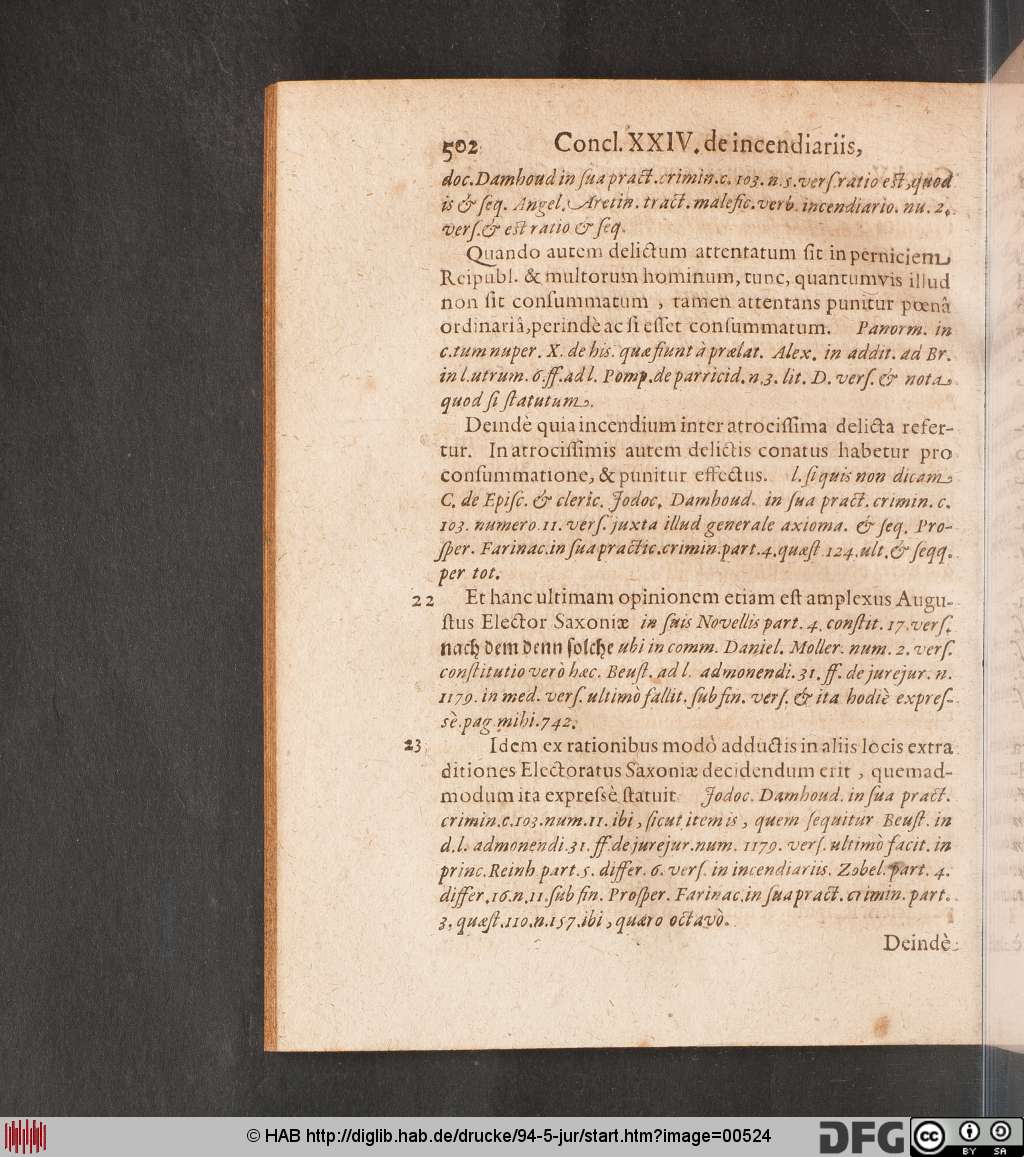 502 Concl. XXIV. de incendiariis,
doc. Damhoud in ſua pract. crimin. c. 103. n. 5. verſ. ratio eſt, quod
is & ſeq. Angel. Aretin. tract. malefic. verb. incendiario. nu. 2.
verſ. & eſt ratio & ſeq.
Quando autem delictum attentatum ſit in perniciem
Reipubl. & multorum hominum, tunc, quantumvis illud
non ſit conſummatum , tamen attentans punitur pœnâ
ordinariâ, perindè ac ſi eſſet conſummatum. Panorm. in
c. tum nuper. X. de his. quæ fiunt à prælat. Alex. in addit. ad Br.
in l. utrum. 6. ff. ad l. Pomp. de parricid. n. 3. lit. D. verſ. & nota
quod ſi ſtatutum.
Deindè quia incendium inter atrociſſima delicta refer-
tur. In atrociſſimis autem delictis conatus habetur pro
conſummatione, & punitur effectus. l. ſi quis non dicam
C. de Epiſc. & cleric. Jodoc. Damhoud. in ſua pract. crimin. c.
103. numero 11. verſ. juxta illud generale axioma. & ſeq. Pro-
ſper. Farinac. in ſua practic. crimin. part. 4. quæſt 124. ult. & ſeqq.
per tot.
22 Et hanc ultimam opinionem etiam eſt amplexus Augu-
ſtus Elector Saxoniæ in ſuis Novellis part. 4. conſtit. 17. verſ.
nach dem denn ſolche ubi in comm. Daniel. Moller. num. 2. verſ.
conſtitutio verò hæc. Beuſt. ad l. admonendi. 31. ff. de jurejur. n.
1179. in med. verſ. ultimò fallit. ſub fin. verſ. & ita hodiè expreſ-
sè. pag mihi. 742.
23 Idem ex rationibus modò adductis in aliis locis extra
ditiones Electoratus Saxoniæ decidendum erit , quemad-
modum ita expreſsè ſtatuit Jodoc. Damhoud. in ſua pract.
crimin. c. 103. num. 11. ibi , ſicut item is , quem ſequitur Beuſt. in
d. l. admonendi. 31. ff. de jurejur. num. 1179. verſ. ultimò facit. in
princ. Reinh part. 5. differ. 6. verſ. in incendiariis. Zobel. part. 4.
differ. 16. n. 11. ſub fin. Proſper. Farinac. in ſua pract. crimin. part.
3. quæſt. 110. n. 157. ibi , quæro octavò.
Deindè
© HAB http://diglib.hab.de/drucke/94-5-jur/start.htm?image=00524
DFG cc BY SA